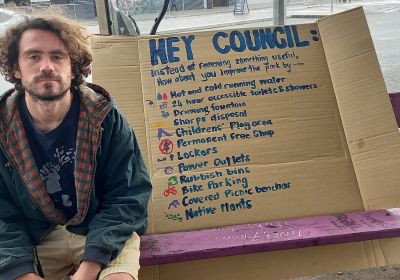 HEY COUNCIL:
Instead of removing something useful,
How about you improve the park by—
Hot and cold running water
24 hour accessible toilets & showers
Drinking fountain
Sharps disposal
Childrens' Play area
Permanent Free Shop
Lockers
Power Outlets
Rubbish bins
Bike Parking
Covered Picnic benches
Native Plants